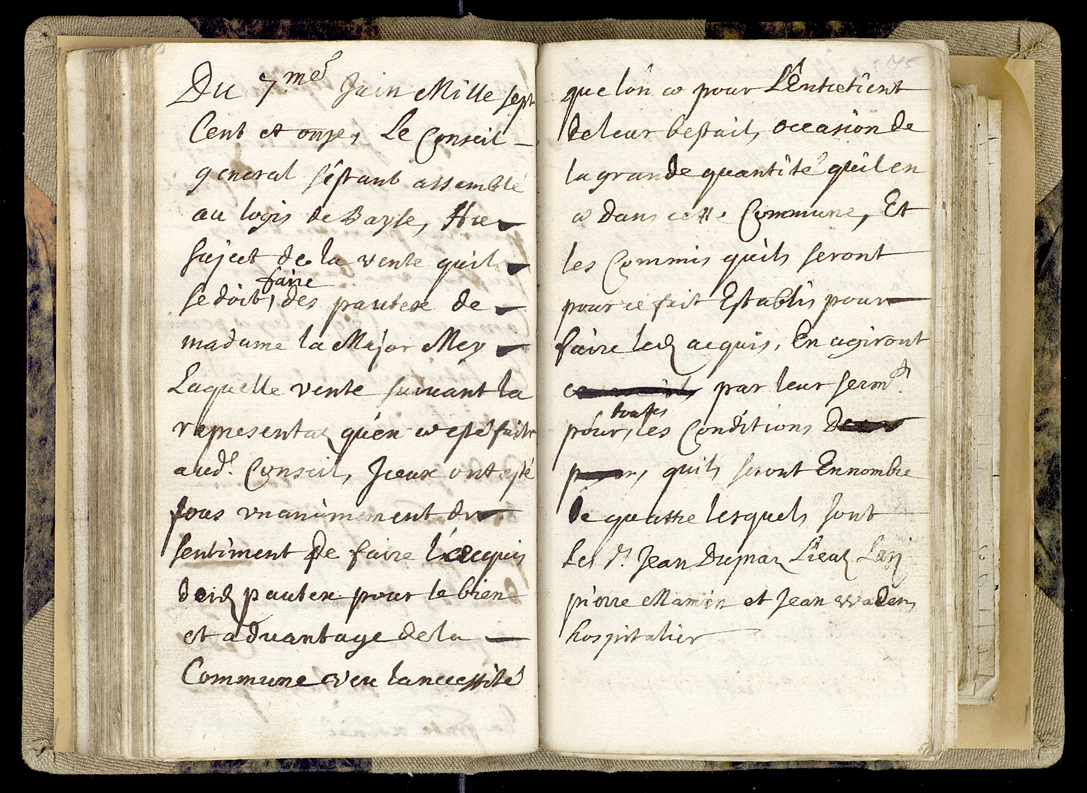 Du 7me Juin Mille sept
Cent et onze, Le Conseil
general s'estant assemblé
au logis de Bayse, Au
suject de la vente quil
se doibt, faire des pautex de
madame la Major Mey
Laquelle vente suivant la
representaōn quén a esté faitte
aud. Conseil, Iceux ont esté
tous unanimement du
sentiment de faire l'acquis
desd pautex pour le bien
et advantage de la
Commune veu la necessité
que l'ón a pour L'Entretient
de leur bestail, occasion de
la grande quantité quil en
a dans cette Commune, Et
les Commis quils seront
pour ce fait Establis pour
faire led acquis, En agiront
par leur serm.t
pour, toutes les Conditions
quils seront En nombre
de quattre lesquels sont
Les Srs Jean Dupraz Lieut
pierre Mamin et Jean
hospitalier